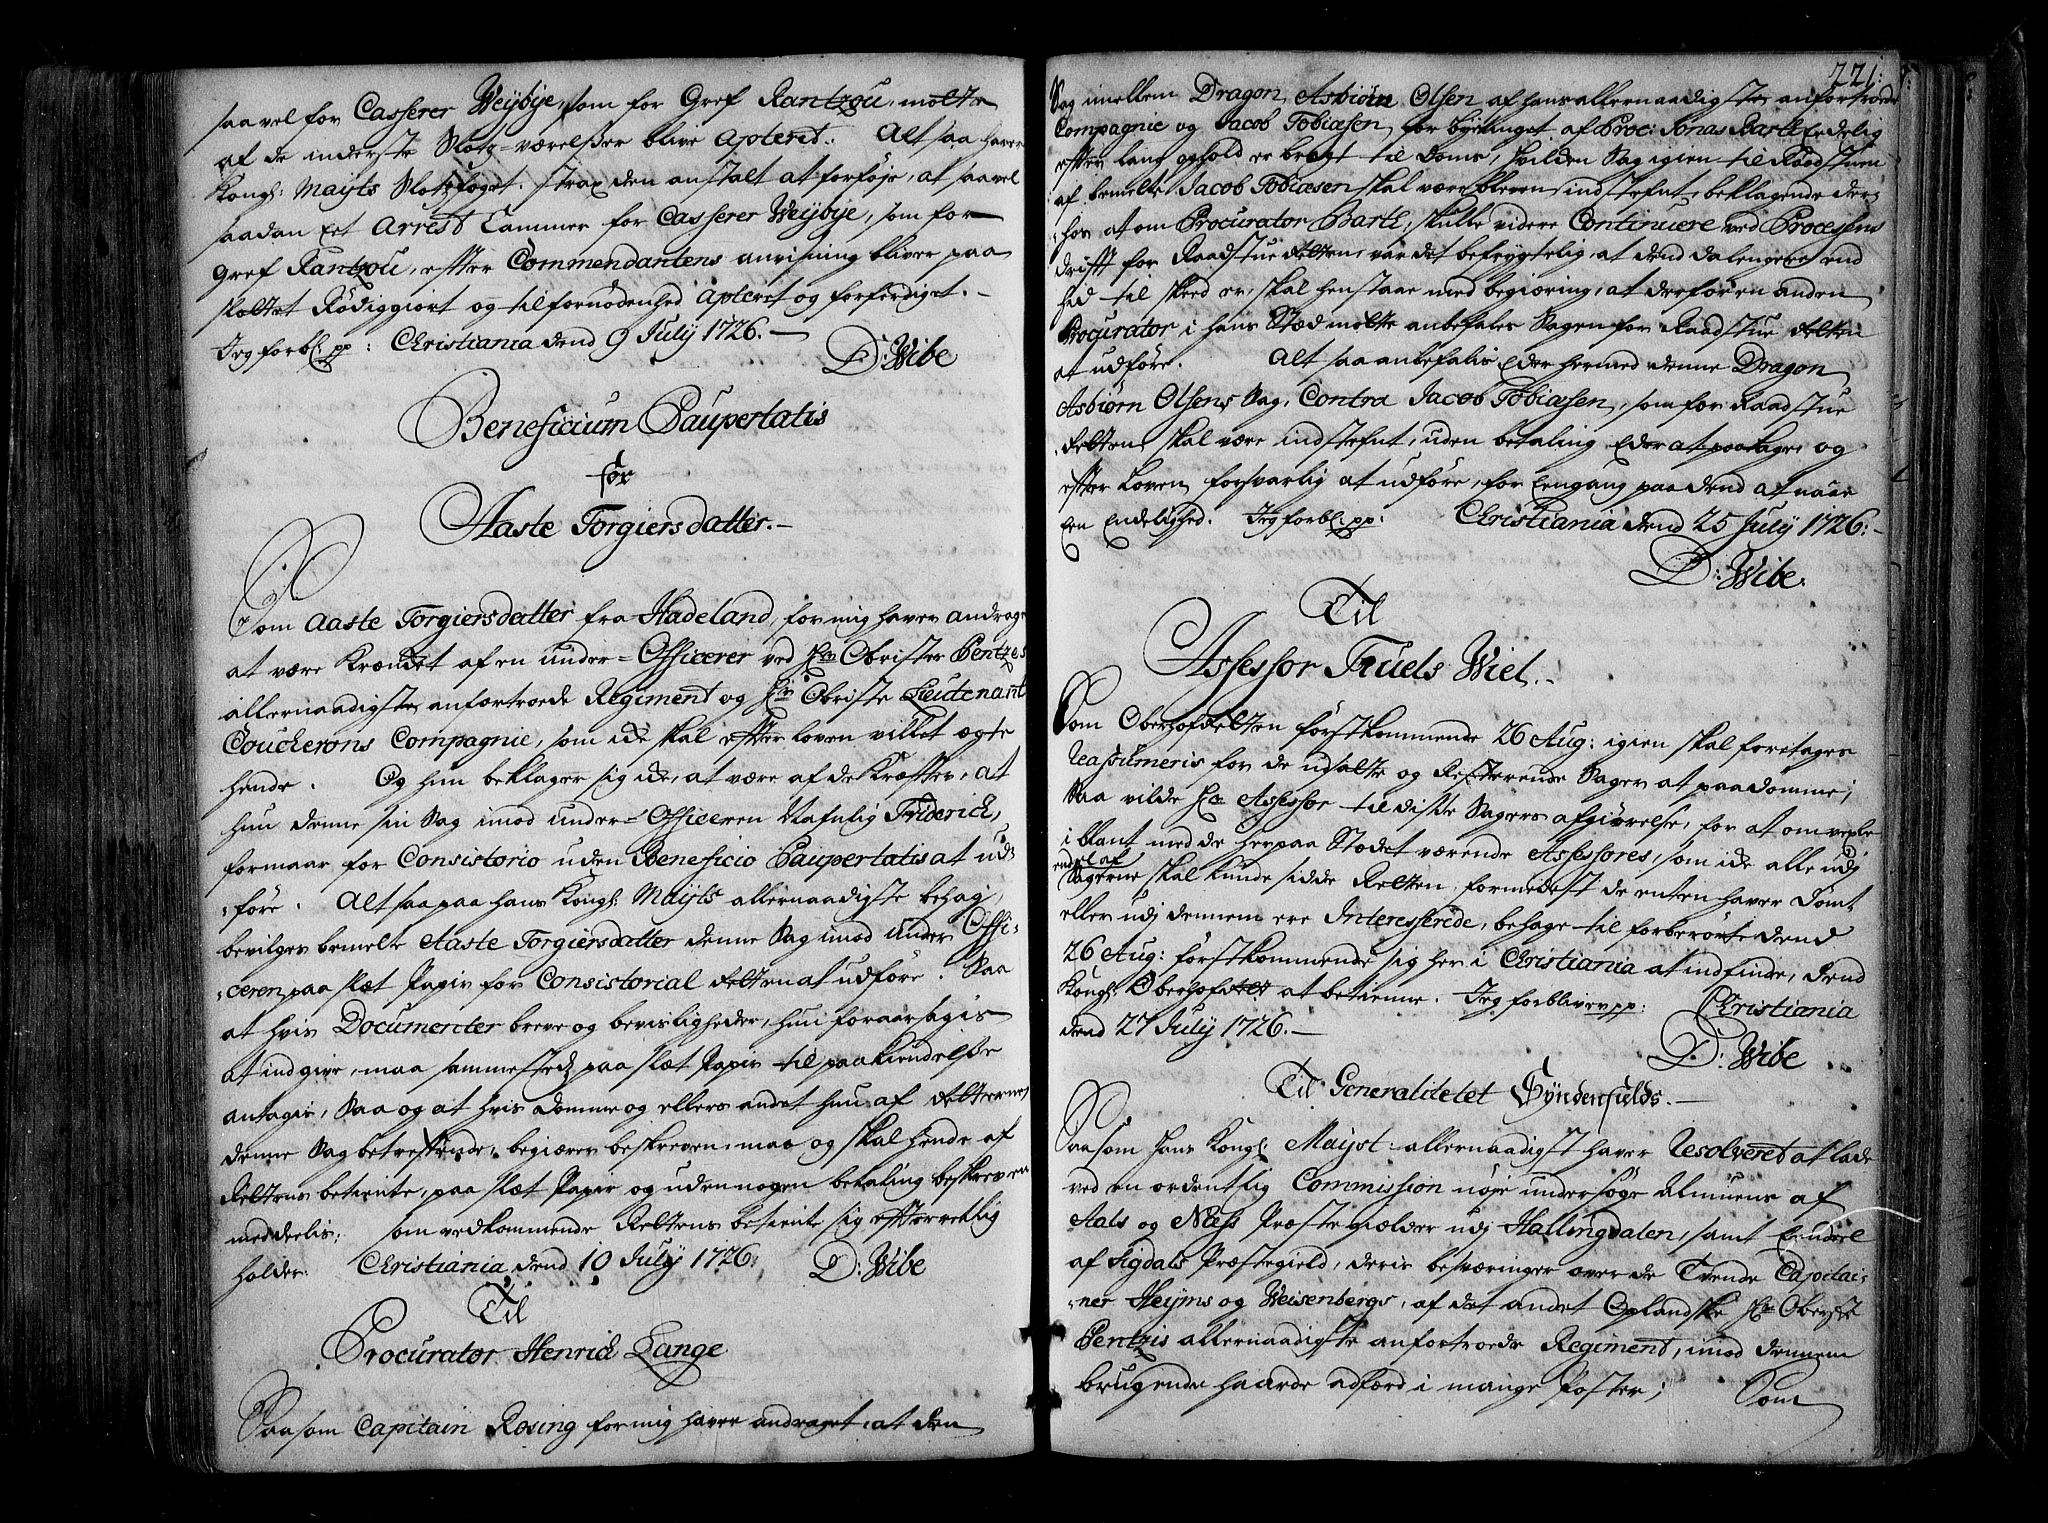 saa vel for Casserer Weÿbÿe, som for Gref Rantzou, motte
af de inderste Slotz-værelsser blive apteret. Alt saa haver
Kongl: Maÿts Slotzfoget, strax den anstalt at forføje, at saavel
saadan Eet Arrest Cammer for Casserer Weÿbÿe, som for
Gref Rantzou, efter Commendantens anvisning bliver paa
slottet Rÿdiggiort og til fornødenhed apteret og forferdiget.
Jeg forbl: pp: Christiania dend 9 Julÿ 1726.
D: Wibe
Beneficium Paupertatis
for
Aaste Torgiersdatter.
Som Aaste Torgiersdatter fra Hadeland, for mig haver andraget
at være Krændet af en under-Officerer ved Hr Obrister Pentzes
allernaadigste anfortroede Regiment og Hr Obriste Lieutenant
Coucherons Compagnie, som ide skal efter loven villet ægte
hende. Og hun beklager sig ide, at være af de Kræffter, at
hun denne sin Sag imod under-Officeren Nafnlig Friderich,
formaar for Consistorio uden Beneficio Paupertatis at ud-
føre. Alt saa paa hans Kongl: Maÿts allernaadigste behag,
bevilges bemelte Aaste Torgiersdatter denne Sag imod under Offi-
ceren paa slæt Papir for Consistorial Retten at udføre. Saa
at hvis Documenter breve og bevisligheder, hun foraarsagis
at indgive, maa sammesteds paa slæt Papir til paakiendelse
antagis, Saa og at hvis Domme og ellers andet hun af Retternes
denne Sag betreffende, begiærer beskreven, maa og skal hende af
Rettens betiente, paa slæt Papir og uden nogen betaling beskreven
meddeelis; som vedkommende Rettens betiente sig efterretlig
holder. Christiania dend 10 Julÿ 1726. D: Wibe
Til
Procurator Henrich Lange
Saasom Capitain Rosing for mig haver andraget, at den
221.
Sag imellem Dragon Asbiørn Olsen af hans allernaadigste anfortroede
Compagnie og Jacob Tobiæsen, for bÿetinget af Proc: Jonas Bartl Endelig
efter lang ophold er bragt til doms, hvilden Sag igien til Raadstuen
af bemelte Jacob Tobiæsen skal være bleven indstefnt, beklagende der-
hos at om Procurator Bartl, skulle videre Continuere ved Processens
drifft for Raadstue Retten, var det befrygtelig, at dend da lengere end
hid til skeed er, skal henstaae med begiæring, at derfor en anden
Procurator i hans Stæd motte anbefales Sagen for Raadstue Retten
at udføre. Alt saa anbefalis Eder hermed denne Dragon
Asbiørn Olsens Sag, Contra Jacob Tobiæsen, som for Raadstue
Retten skal være indstefnt, uden betaling Eder at paatage og
efter Loven forsvarlig at udføre, for Eengang paa dend at naae
Een Endelighed. Jeg forbl: pp: Christiania dend 25 Julÿ 1726.
D: Wibe.
Til
Assessor Truels Wiel.
Som Oberhofretten førstkommende 26 Aug: igien skal foretages
Reassumeris for de udsatte og Resterende Sager at paadomme;
Saa vilde Hr Assessor til diste Sagers afgiørelse, for at omvexle
iblant med de her paa Stedet værende Assessores, som ide alle udj
endel af
Sagerne skal kunde sidde Retten, formedelst de enten haver Dømt
eller udj dennem ere Interesserede, behage til forberørte dend
26 Aug: førstkommende sig her i Christiania at indfinde, dend
Kongl: Oberhofrett at betienne. Jeg forbliver pp: Christiania
dend 27 Julÿ 1726.
D: Wibe
Til Generalitetet Syndenfields.
Saasom Hans Kongl: Maÿst allernaadigst haver Resolveret at lade
ved en ordentlig Commission nøje undersøge Almuens af
Aals og Næss Præstegielder udj Hallingdalen, samt Eendeel
af Sigdals Præstegield, deris besværinger over de Tvende Capitai-
ner Heÿms og Weisenbergs, af det andet Oplandske Hr Oberste
Pentzis allernaadigste anfortroede Regiment, imod dennem
brugende haarde adferd i mange Poster; Som